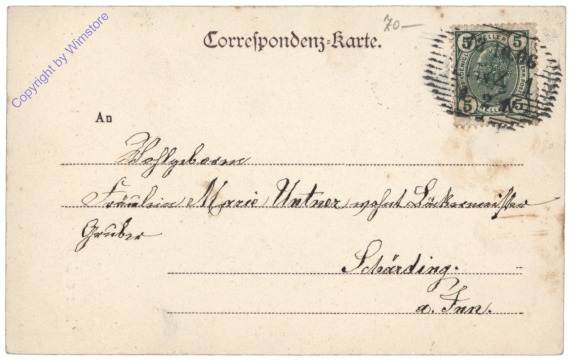 70—
Correspondenz-Karte.
5 5
5 5
An
Wohlgeboren
Fräulein Marie Untner, wohnt Bäckermeister
Gruber
Schärding.
a. Inn.
Copyright by Wimstore